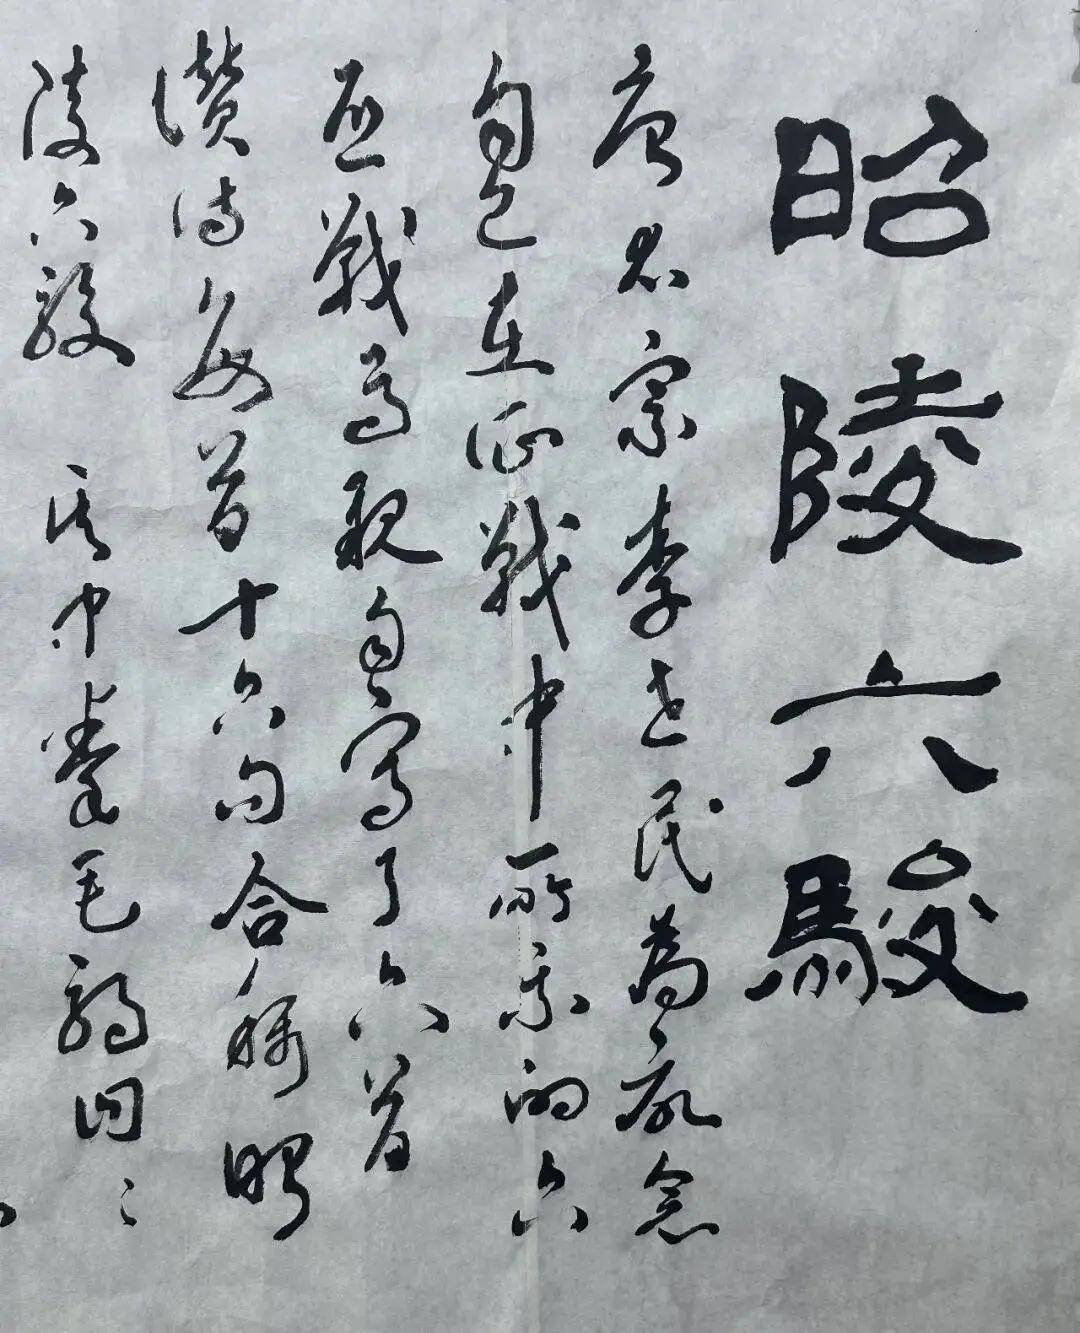 昭陵六駿
唐太宗李世民為紀念
自己在征戰中所乘的六
匹戰馬親自寫了六首
讚詩每首十六句合稱昭
陵六駿 其中拳毛騧